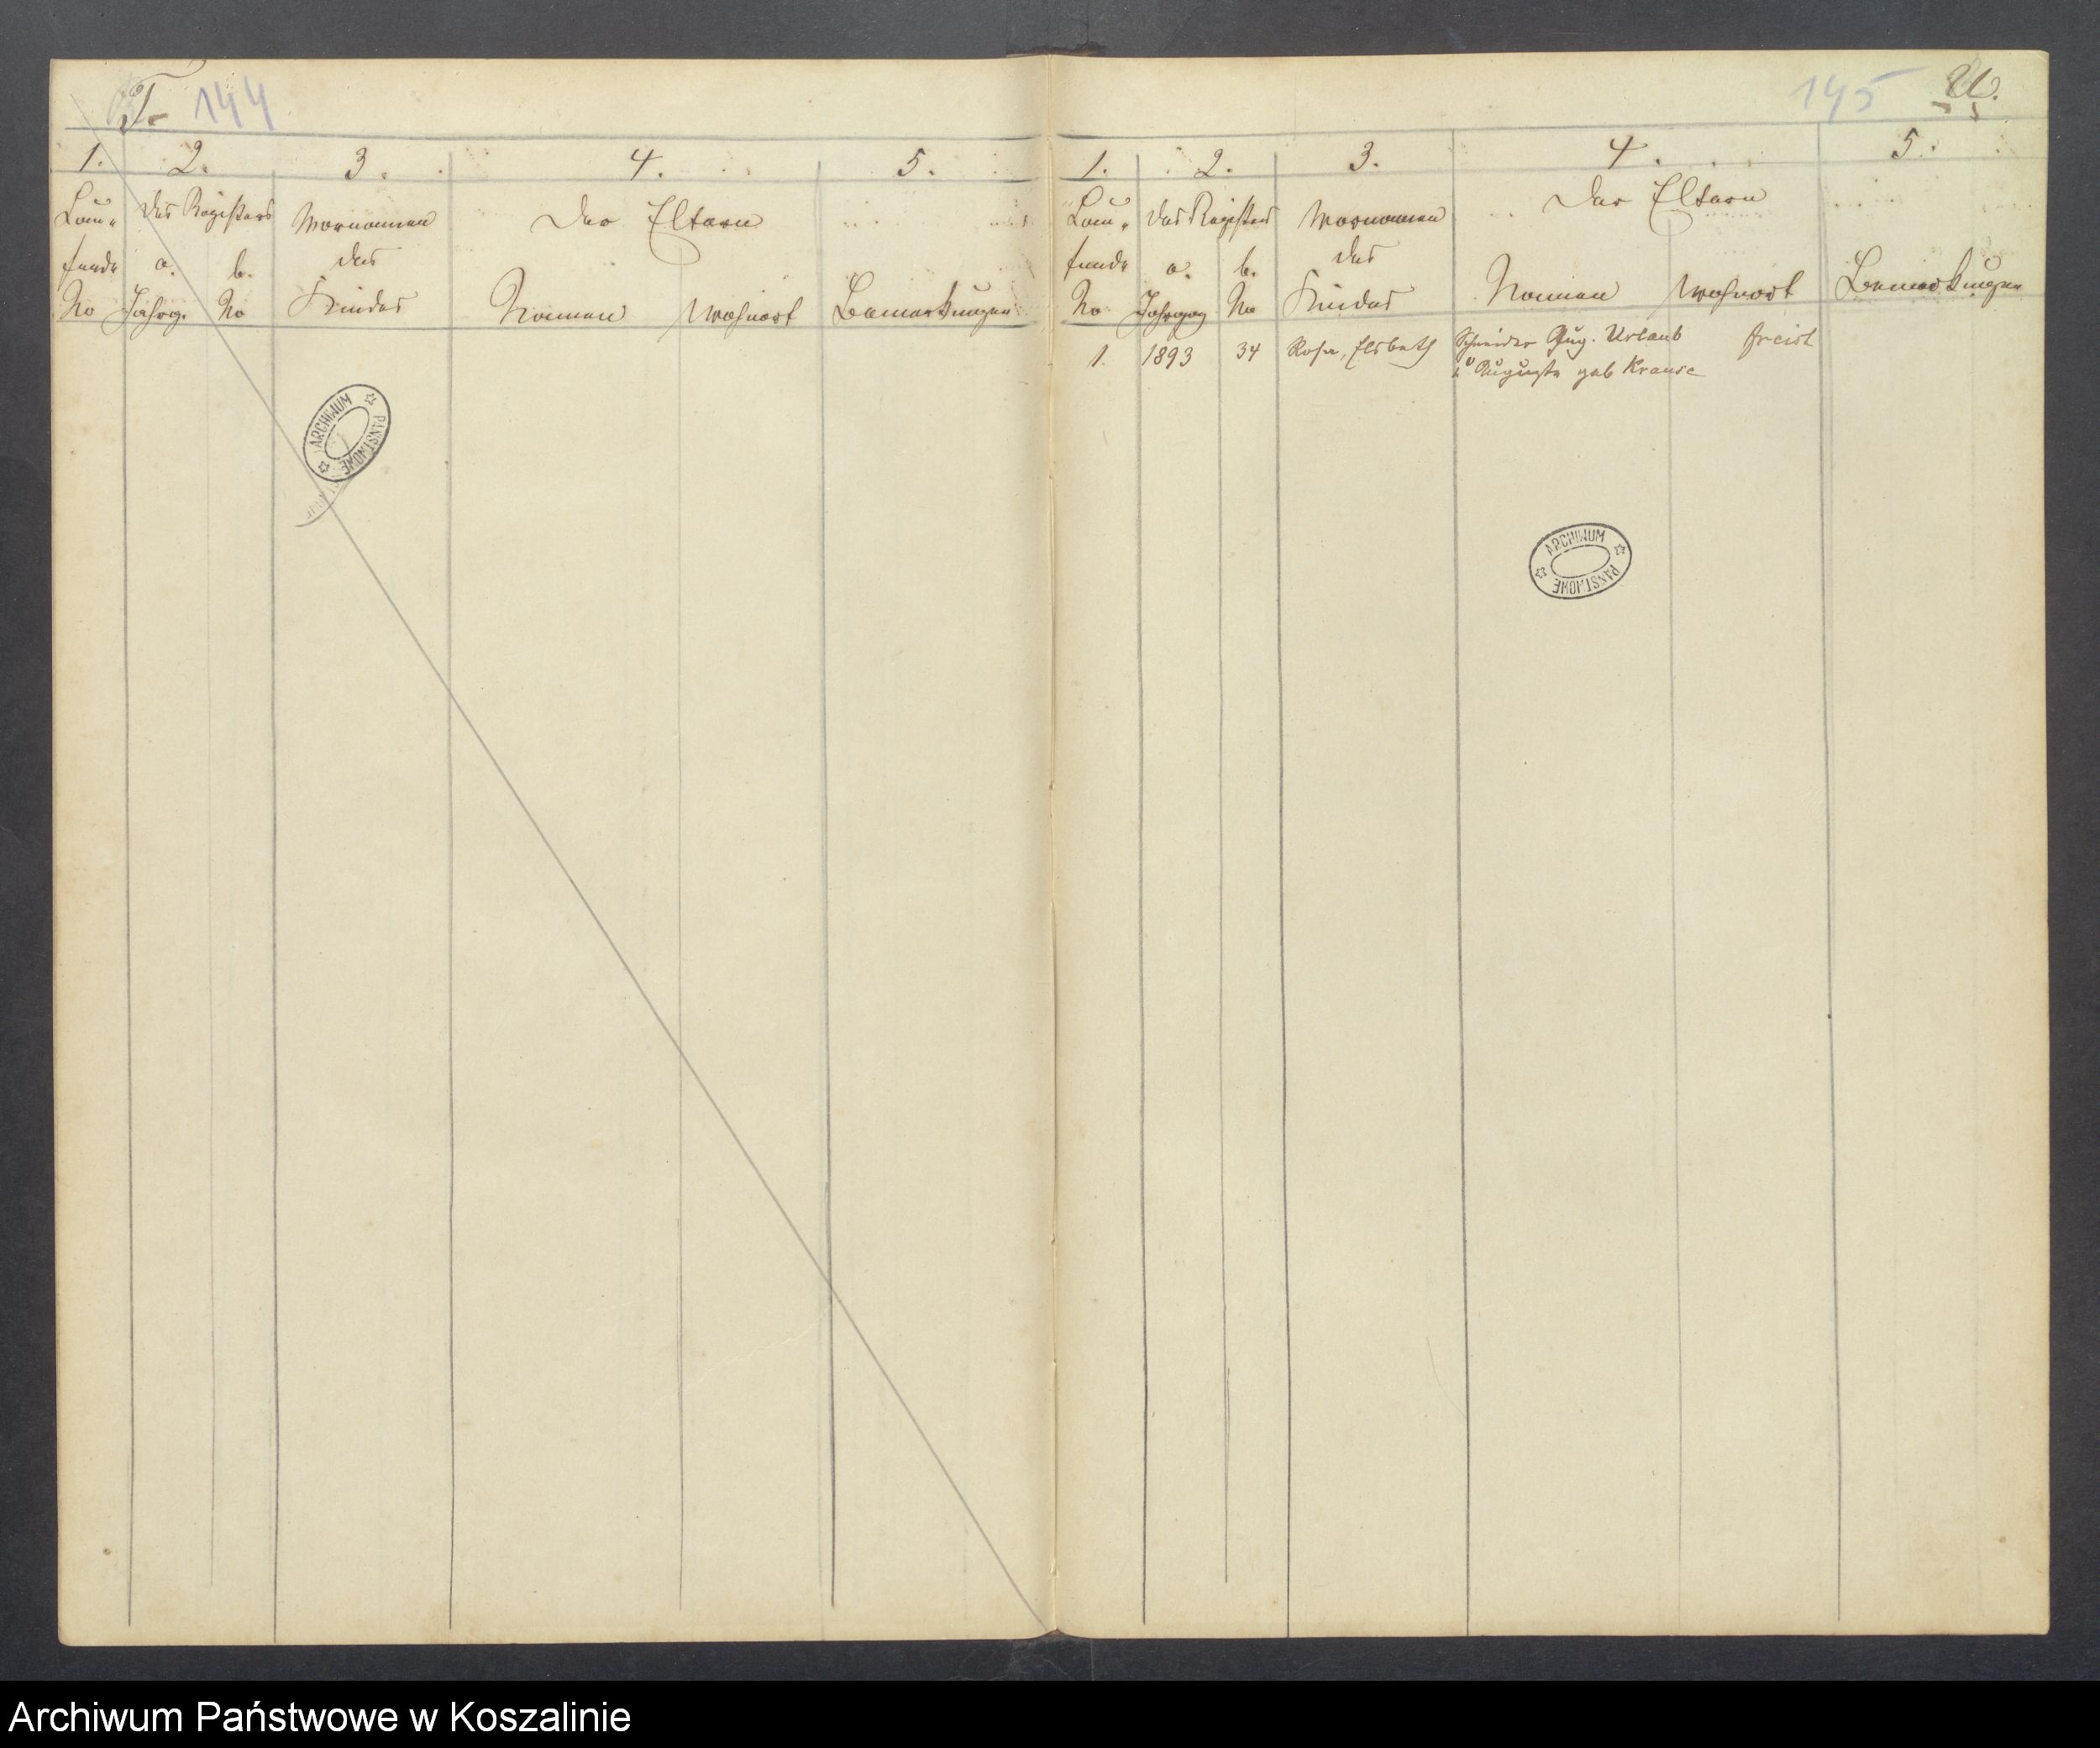 T. 144
1. 2. 3. 4. 5.
Lau- des Registers Vornamen Der Eltern
fende a. b. des
No Jahrg. No Kindes Namen Wohnort Bemerkungen
ARCHIWUM PAŃSTWOWE
145 U.
1. 2. 3. 4. 5.
Lau- des Registers Vornamen Der Eltern
fende a. b. des
No Jahrgg No Kindes Namen Wohnort Bemerkungen
1. 1893 34 Rosa, Elsbeth Schneider Aug. Urlaub Freist
u Auguste geb Krause
ARCHIWUM PAŃSTWOWE
Archiwum Państwowe w Koszalinie